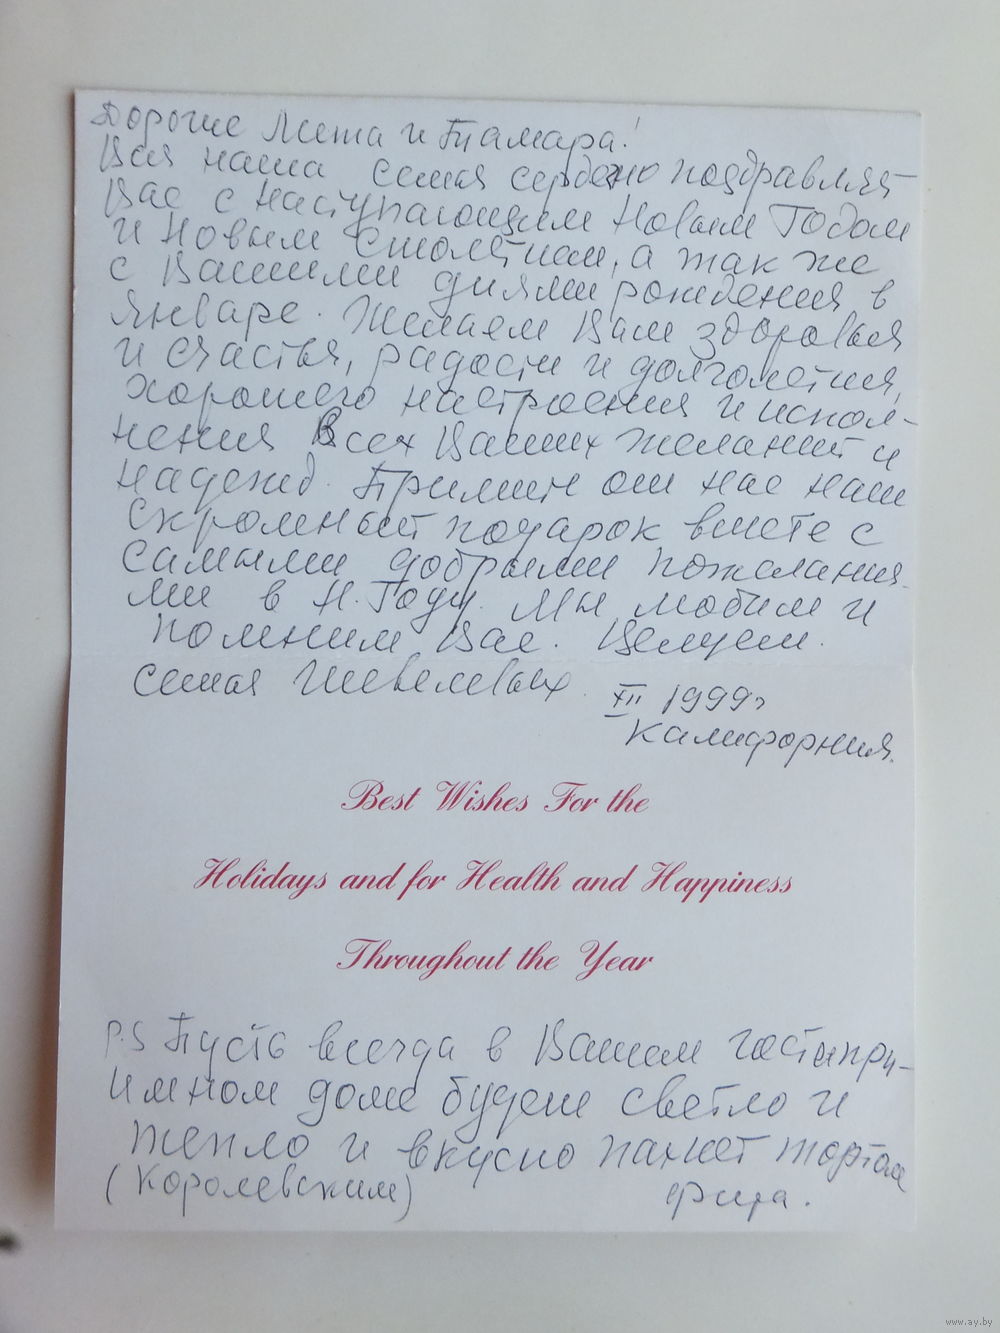 Дорогие Миша и Тамара!
Вся наша семья сердечно поздравляет
Вас с наступающим Новым Годом
и Новым столетием, а так же
с Вашими днями рождения в
Январе. Желаем Вам здоровья
и счастья, радости и долголетия,
хорошего настроения и испол-
нения Всех Ваших желаний и
надежд. Примите от нас наш
скромный подарок вместе с
самыми добрыми пожелания-
ми в Н. Году. Мы любим и
помним Вас. Целуем.
семья Шевелевых. XII 1999г
Калифорния.
Best Wishes For the
Holidays and for Health and Happiness
Throughout the Year
P.S Пусть всегда в Вашем гостипри-
имном доме будет светло и
тепло и вкусно пахнет тортом
(Королевским)
www.ay.by